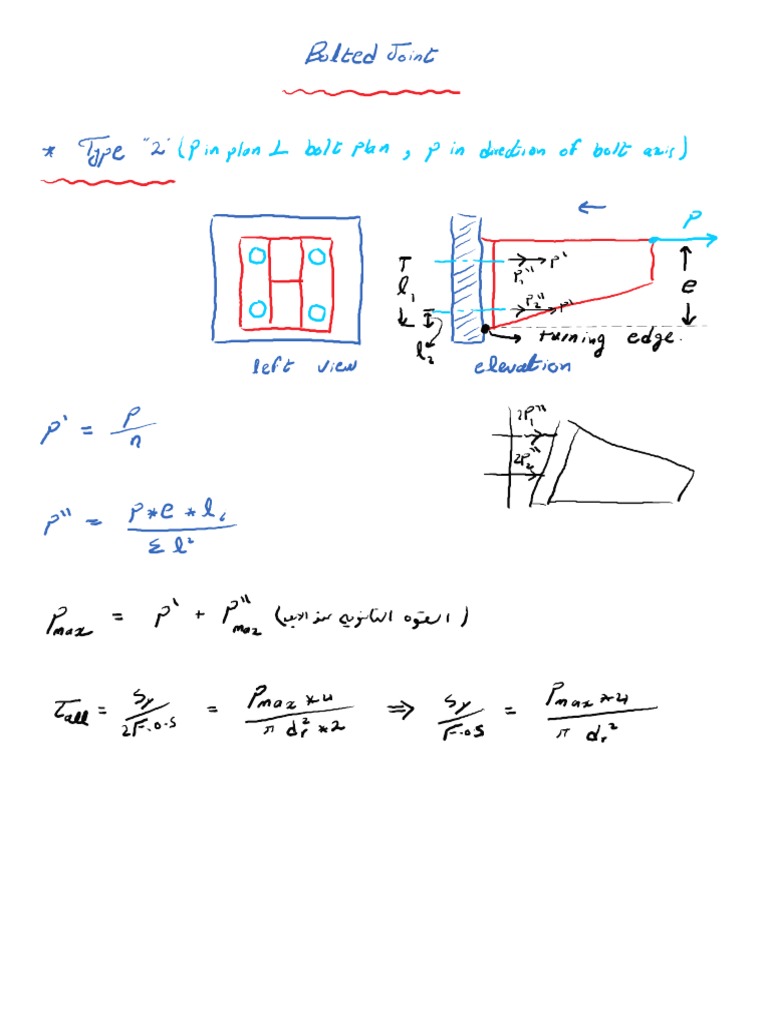 Bolted Joint
* Type "2" (P in plan ⊥ bolt plan, P in direction of bolt axis)
← P
T P₁'' P'
l₁ e
P₂'' P'
l₂ turning edge.
left view elevation
2P₁''
2P₂''
P' = P/n
P'' = P*e*lᵢ / Σ l²
Pmax = P' + P''max (القوه الثانويه عند الابعد)
τall = Sy/2F.O.S = Pmax*4 / π dr²*2 ⇒ Sy/F.O.S = Pmax*4 / π dr²